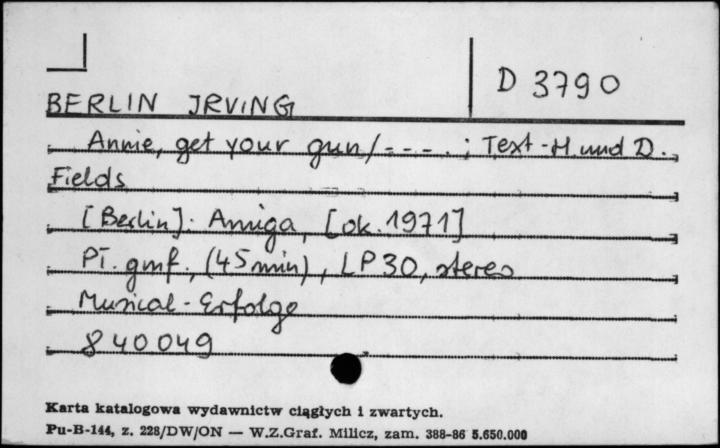 D 3790
BERLIN IRVING
Annie, get your gun/---.; Text-H. und D.
Fields
[Berlin]: Amiga, [ok. 1971]
Pł. gmf., (45 min), LP 30, stereo
Musical-Erfolge
840049
Karta katalogowa wydawnictw ciągłych i zwartych.
Pu-B-144, z. 228/DW/ON — W.Z.Graf. Milicz, zam. 388-86 5.650.000